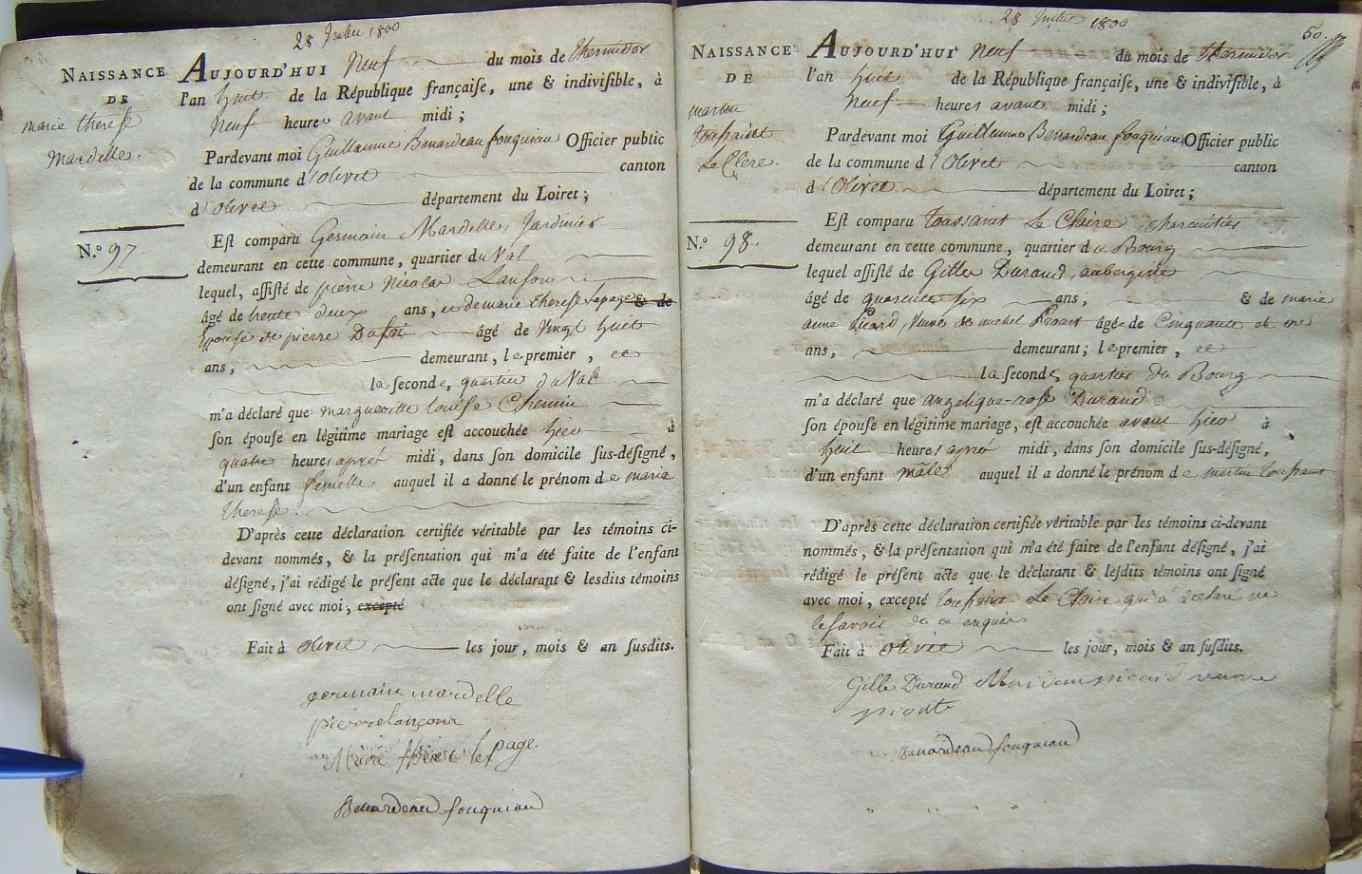 28 Juillet 1800
NAISSANCE
DE
marie therese
Mardelle.
N.º 97
AUJOURD'HUI Neuf du mois de thermidor
l'an huit de la République française, une & indivisible, à
Neuf heures avant midi ;
Pardevant moi Guillaume Benardeau fouquiau Officier public
de la commune d'olivet canton
d'olivet département du Loiret ;
Est comparu Germain Mardelle, Jardinier
demeurant en cette commune, quartier du Val
lequel, assisté de pierre Nicolas
âgé de trente deux ans, et de marie therese lepage & de
Epouse de pierre âgé de Vingt huit
ans, demeurant, le premier, et
la seconde, quartier du Val
m'a déclaré que margueritte louise Chemin
son épouse en légitime mariage est accouchée hier à
quatre heures aprés midi, dans son domicile sus-désigné,
d'un enfant femelle auquel il a donné le prénom de marie
therese.
D'après cette déclaration certifiée véritable par les témoins ci-
devant nommés, & la présentation qui m'a été faite de l'enfant
désigné, j'ai rédigé le présent acte que le déclarant & lesdits témoins
ont signé avec moi, excepté
Fait à olivet les jour, mois & an susdits.
germain mardelle
pierre lançon
Marie therese lepage.
Benardeau fouquiau
28 Juillet 1800
50.
NAISSANCE
DE
martin
toussaint
Le Clere.
N.º 98.
AUJOURD'HUI Neuf du mois de thermidor
l'an huit de la République française, une & indivisible, à
Neuf heures avant midi ;
Pardevant moi Guillaume Benardeau fouquiau Officier public
de la commune d'Olivet canton
d'Olivet département du Loiret ;
Est comparu Toussaint Le Claire
demeurant en cette commune, quartier du Bourg
lequel assisté de Gille Durand, aubergiste
âgé de quarente six ans, & de marie
anne picard, Veuve de michel âgé de Cinquante et un
ans, demeurant ; le premier, et
la seconde, quartier du Bourg
m'a déclaré que angelique-rose Durand
son épouse en légitime mariage, est accouchée avant hier à
huit heures aprés midi, dans son domicile sus-désigné,
d'un enfant mâle auquel il a donné le prénom de martin toussaint
D'après cette déclaration certifiée véritable par les témoins ci-devant
nommés, & la présentation qui m'a été faite de l'enfant désigné, j'ai
rédigé le présent acte que le déclarant & lesdits témoins ont signé
avec moi, excepté toussaint Le Claire qui a declaré ne
le savoir de ce enquis
Fait à olivet les jour, mois & an susdits.
Gille Durand veuve
Benardeau fouquiau